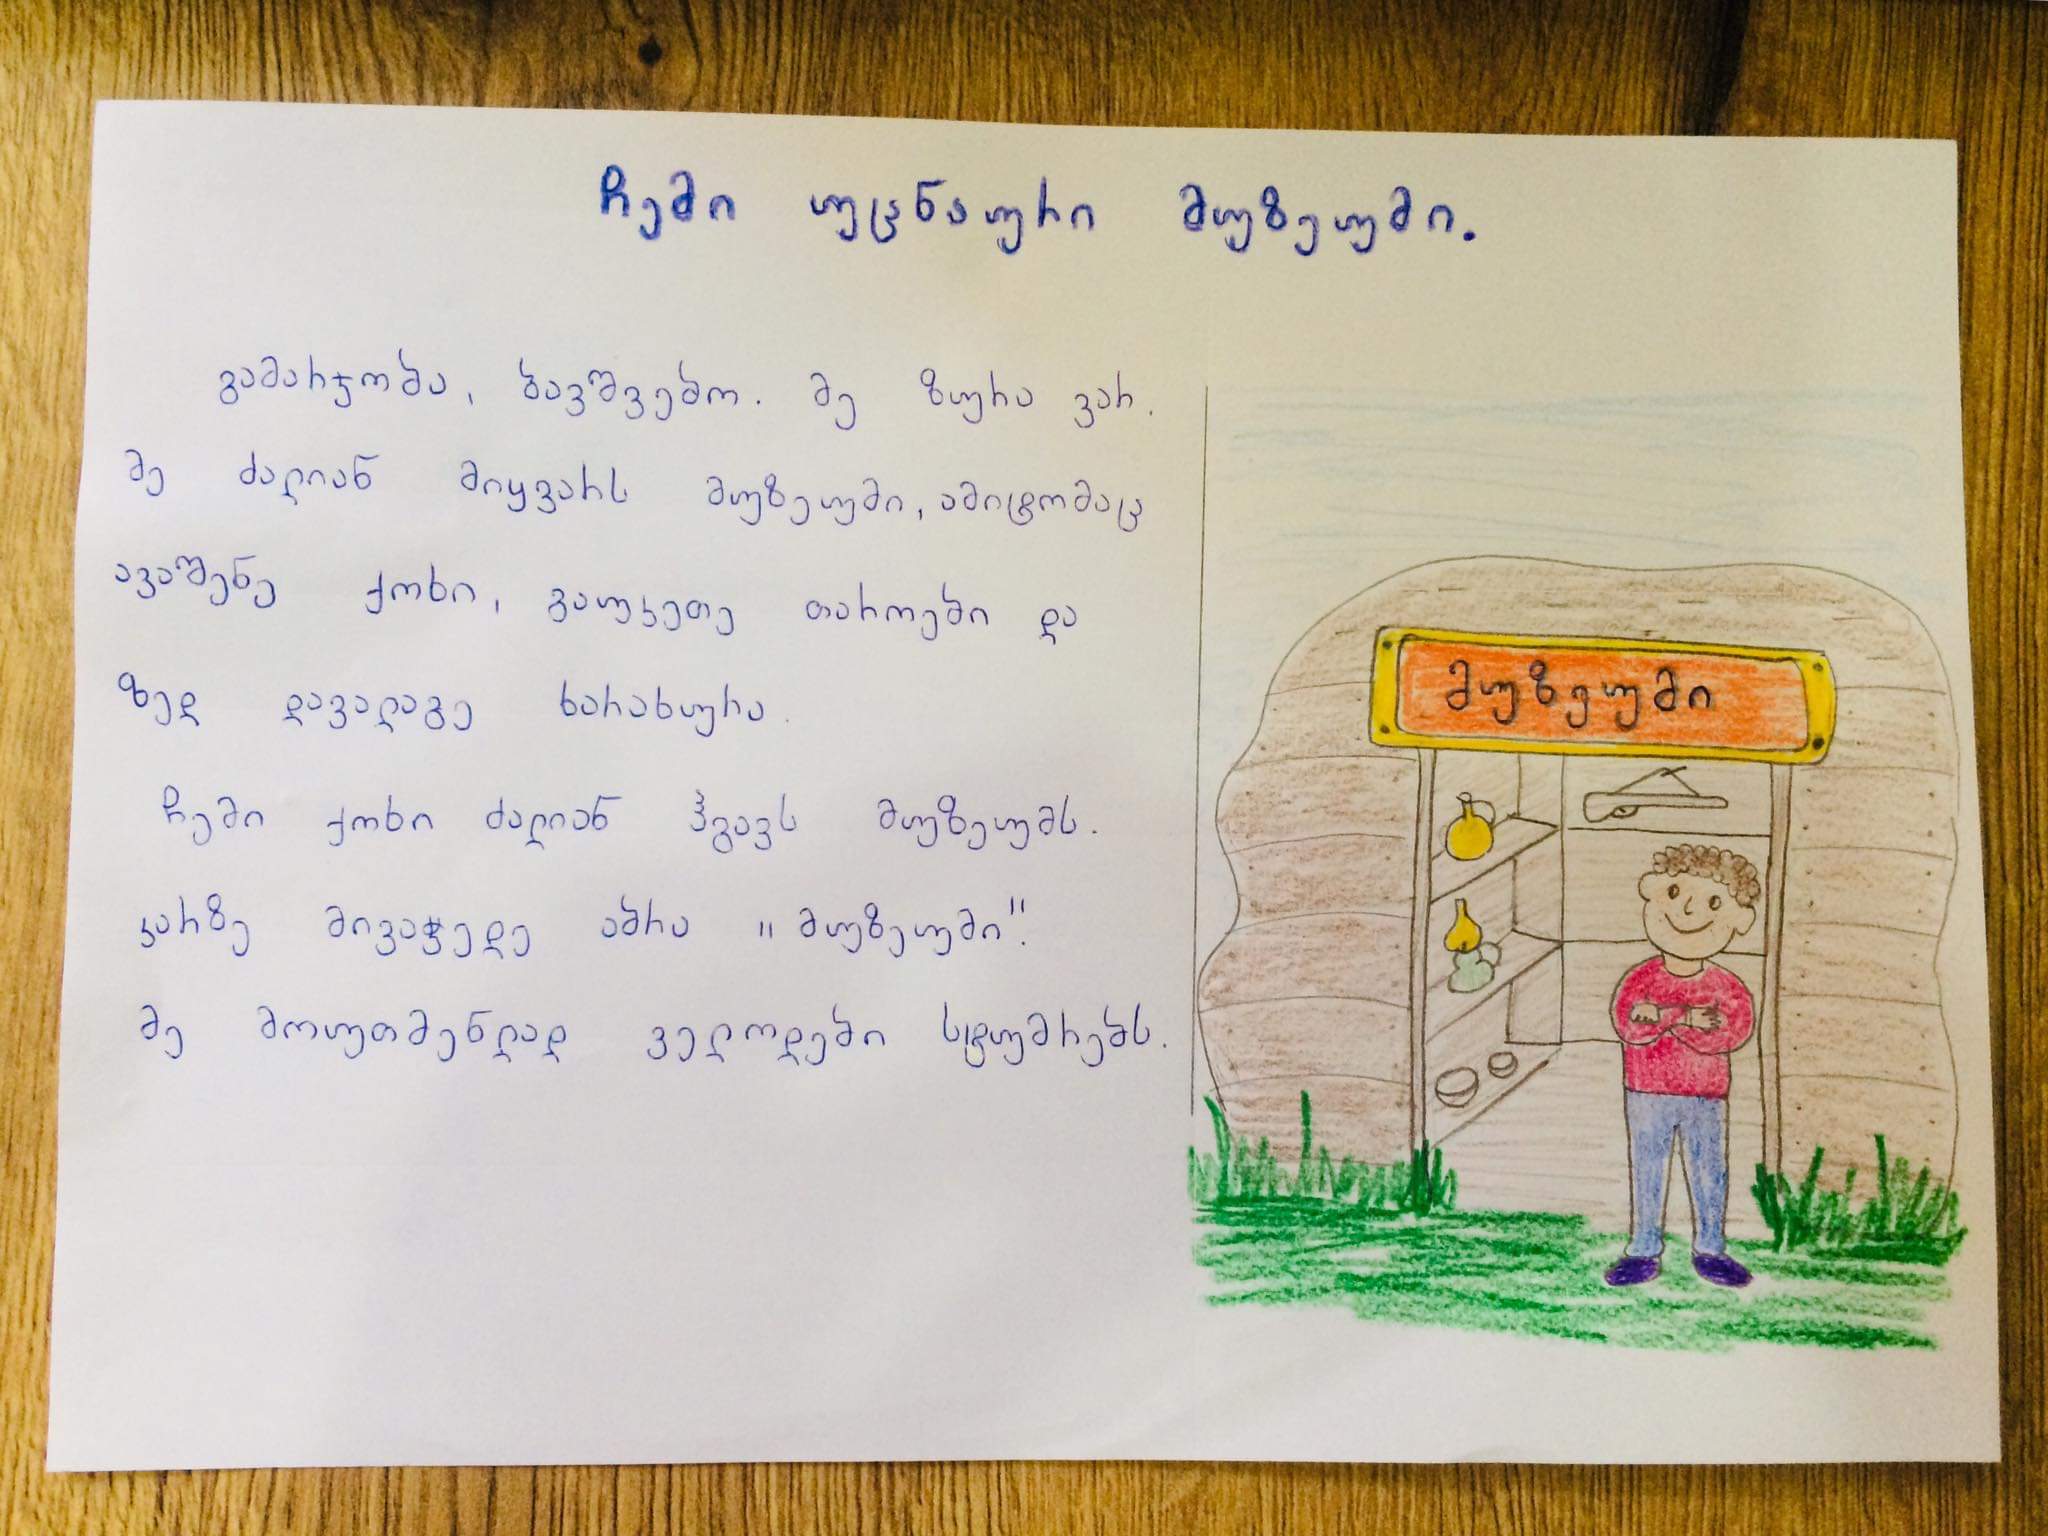 ჩემი უცნაური მუზეუმი.
გამარჯობა, ბავშვებო. მე ზურა ვარ.
მე ძალიან მიყვარს მუზეუმი, ამიტომაც
ავაშენე ქოხი, გავუკეთე თაროები და
ზედ დავალაგე ხარახურა.
ჩემი ქოხი ძალიან ჰგავს მუზეუმს.
კარზე მივაჭედე აბრა "მუზეუმი".
მე მოუთმენლად ველოდები სტუმრებს.
მუზეუმი